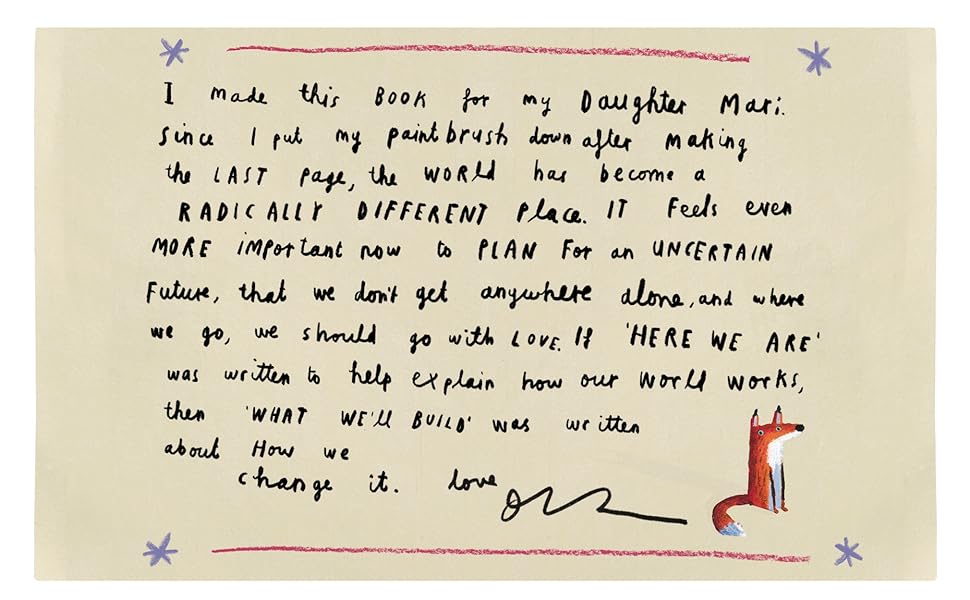 I made this BOOK for my Daughter Mari.
Since I put my paintbrush down after making
the LAST page, the WORLd has become a
RADICALLY DIFFERENT Place. IT Feels even
MORE important now to PLAN For an UNCERTAIN
Future, that we don't get anywhere alone, and where
we go, we should go with LOVE. If 'HERE WE ARE'
was written to help explain how our World works,
then 'WHAT WE'll BUILD' was written
about How we
change it. love